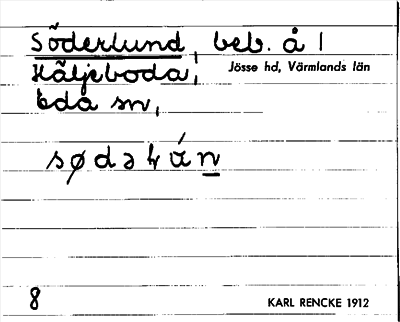 Söderlund, beb. å 1
Häljeboda, Jösse hd, Värmlands län
Eda sn,
8
KARL RENCKE 1912